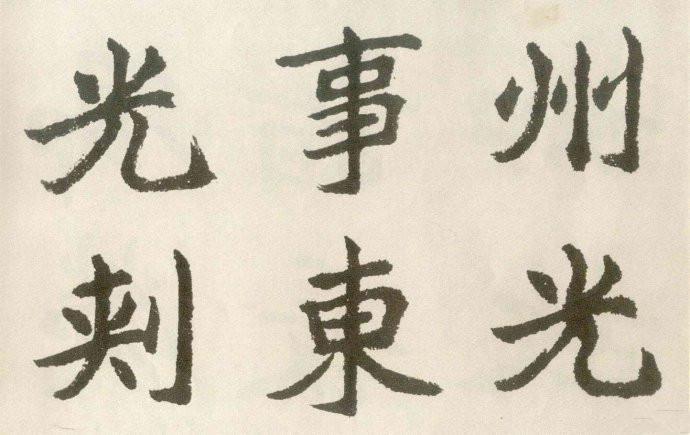 州光
事東
光刺